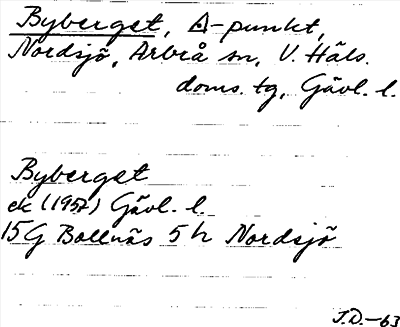 Byberget, △-punkt,
Nordsjö, Arbrå sn, V. Häls.
doms. tg, Gävl. l.
Byberget
ek (1957) Gävl. l.
15G Bollnäs 5 h Nordsjö
J.D.—63